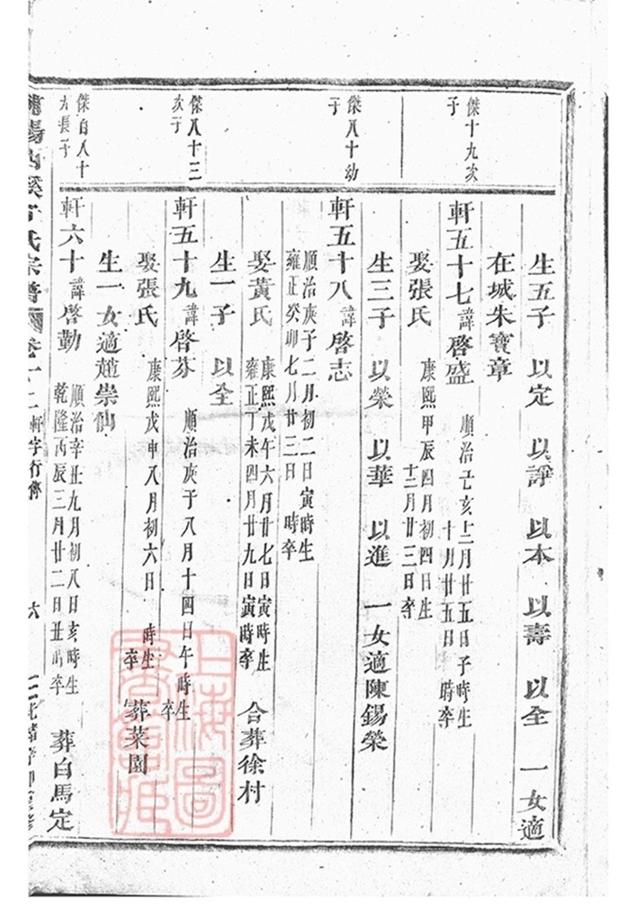 生五子 以定 以諍 以本 以壽 以全 一女適
在城朱寳章
傑十九次子
軒五十七 諱啓盛 順治己亥十二月廿五日子時生
十月廿五日 時卒
娶張氏 康熙甲辰四月初四日生
十二月廿三日卒
生三子 以榮 以華 以進 一女適陳錫榮
傑八十幼子
軒五十八 諱啓志
順治庚子二月初二日寅時生
雍正癸卯七月廿三日 時卒
娶黃氏 康熙戊午六月廿七日寅時生
雍正丁未四月廿九日寅時卒 合葬徐村
生一子 以全
傑八十三次子
軒五十九 諱啓芬 順治庚子八月十四日午時生
卒
娶張氏 康熙戊申八月初六日 時生
卒 葬菜園
生一女適趙崇仙
傑百八十九長子
軒六十 諱啓勤 順治辛丑九月初八日亥時生
乾隆丙辰三月廿二日丑時卒 葬白馬定
氏宗譜 卷十二 軒字行傳 六
上海圖書館藏